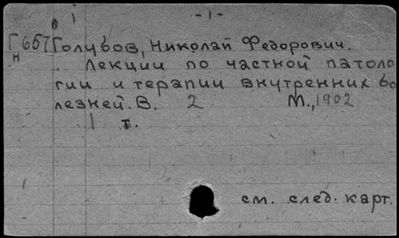 1 -1-
Г 657 Голубов, Николай Федорович.
н . Лекции по частной патоло
гии и терапии внутренних бо
лезней. В. 2 М., 1902
1 т.
см. след. карт.